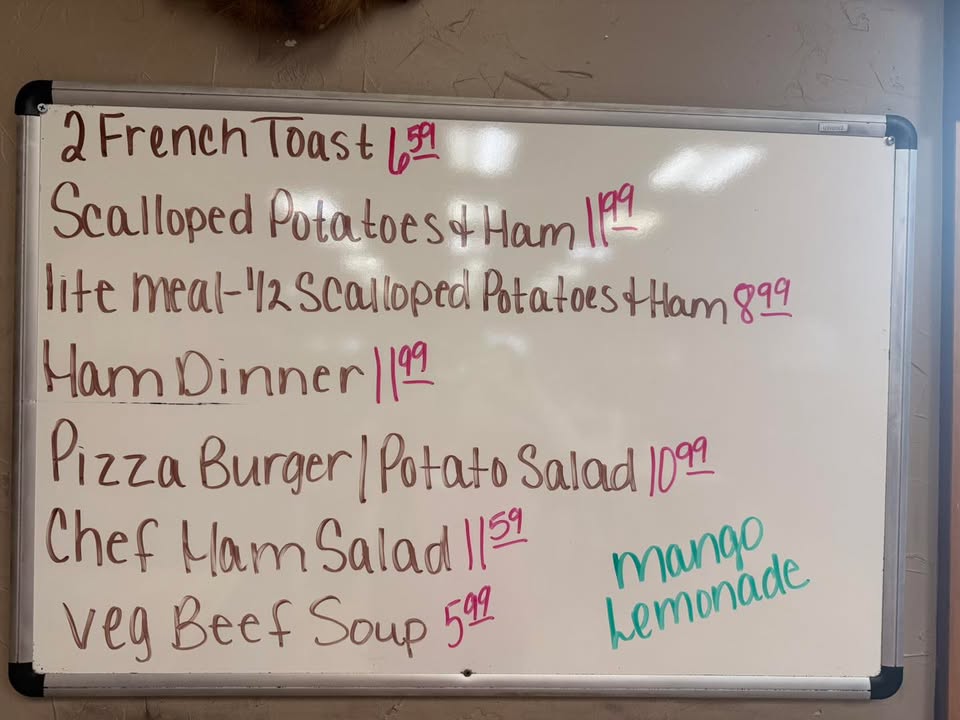 2 French Toast 6 59
Scalloped Potatoes & Ham 11 99
lite meal-1/2 Scalloped Potatoes & Ham 8 99
Ham Dinner 11 99
Pizza Burger/Potato Salad 10 99
Chef Ham Salad 11 59
Veg Beef Soup 5 99
mango
Lemonade